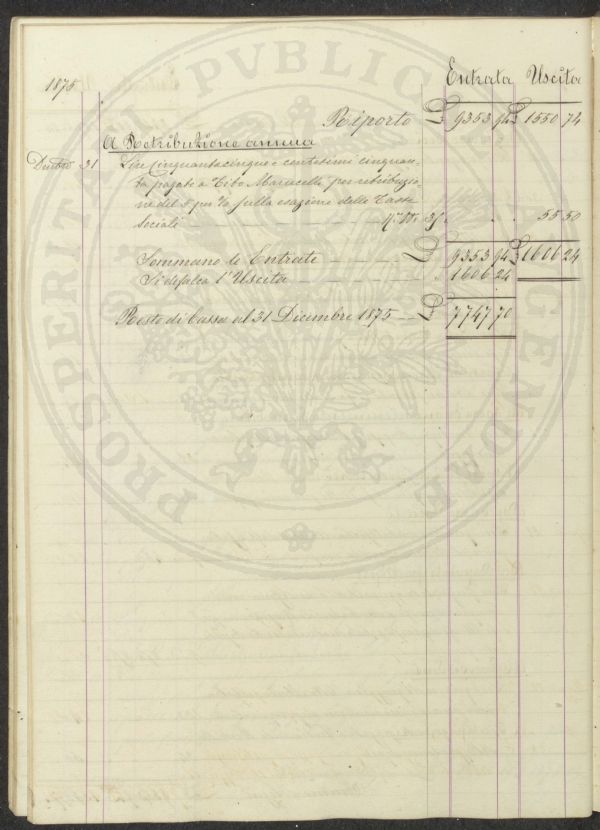 1875
Entrata Uscita
Riporto £ 9353 94 £ 1550 74
A Retribuzione annua
Dicbre 31 Lire Cinquantacinque e centesimi cinquan-
ta pagate a Tito Marucelli per retribuzio-
ne del 5 per % sulla esazione delle Tasse
Sociali 55 50
Sommano le Entrate £ 9353 94 £ 1606 24
Si defalca l'Uscita 1606 24
Resto di Cassa al 31 Dicembre 1875 £ 7747 70
PROSPERITATI PVBLICAE AVGENDAE